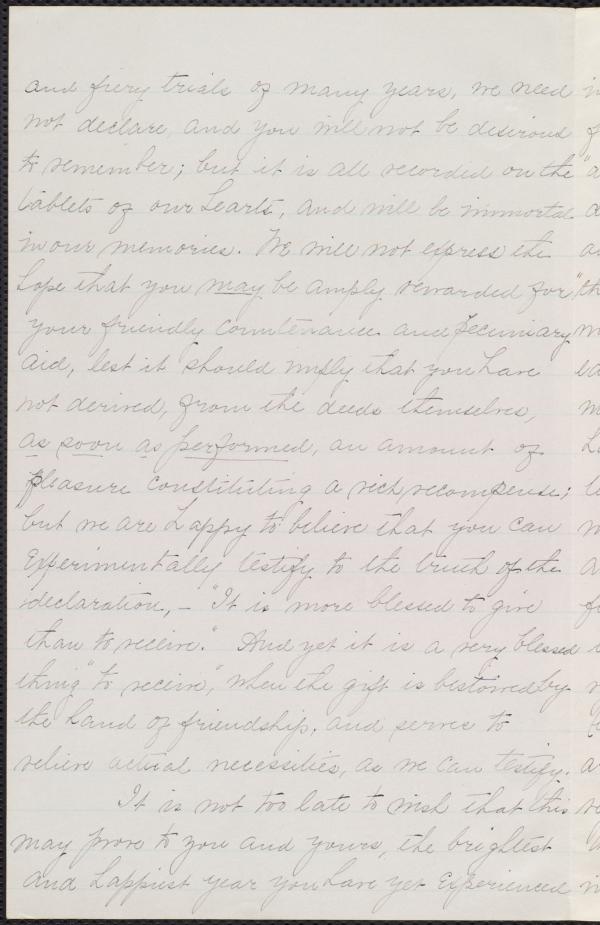 and fiery trials of many years, we need
not declare, and you will not be desirous
to remember; but it is all recorded on the
tablets of our hearts, and will be immortal
in our memories. We will not express the
hope that you may be amply rewarded for
your friendly countenance and pecuniary
aid, lest it should imply that you have
not derived, from the deeds themselves,
as soon as performed, an amount of
pleasure constituting a rich recompense;
but we are happy to believe that you can
experimentally testify to the truth of the
declaration, – "It is more blessed to give
than to receive." And yet it is a very blessed
thing "to receive", when the gift is bestowed by
the hand of friendship, and serves to
relieve actual necessities, as we can testify.
It is not too late to wish that this
may prove to you and yours, the brightest
and happiest year you have yet experienced